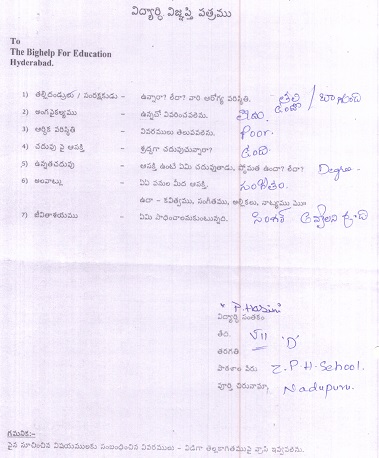 విద్యార్థి విజ్ఞప్తి పత్రము
To
The Bighelp For Education
Hyderabad.
1) తల్లిదండ్రులు / సంరక్షకుడు - ఉన్నారా? లేరా? వారి ఆరోగ్య పరిస్థితి. తల్లి /
2) అంగవైకల్యము - ఉన్నచో వివరించవలెను. లేదు.
3) ఆర్థిక పరిస్థితి - వివరములు తెలుపవలెను. Poor.
4) చదువు పై ఆసక్తి - శ్రద్ధగా చదువుచున్నారా? ఉంది.
5) ఉన్నతచదువు - ఆసక్తి ఉంటే ఏమి చదువుతాడు, స్తోమత ఉందా? లేదా? Degree.
6) అలవాట్లు - ఏఏ పనుల మీద ఆసక్తి. సంగీతం.
ఉదా - కవిత్వము, సంగీతము, అల్లికలు, నాట్యము మొ
7) జీవితాశయము - ఏమి సాధించాలనుకుంటున్నది. సింగర్ అవ్వాలని ఉంది
* P. Hasini
విద్యార్థి సంతకం
తేది. VII 'D'
తరగతి
పాఠశాల పేరు Z.P.H-School.
పూర్తి చిరునామా Nadupuru.
గమనిక:-
పైన సూచించిన విషయములకు సంబంధించిన వివరములు - విడిగా తెల్లకాగితముపై వ్రాసి ఇవ్వవలెను.